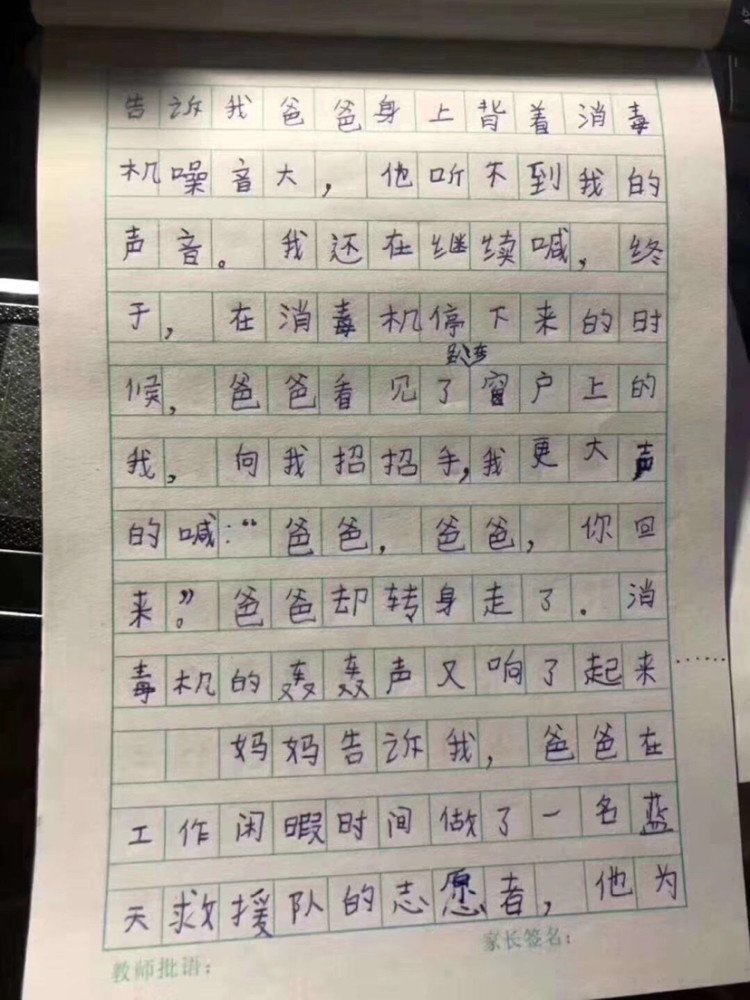 告诉我爸爸身上背着消毒
机噪音大，他听不到我的
声音。我还在继续喊，终
于，在消毒机停下来的时
候，爸爸看见了趴在窗户上的
我，向我招招手，我更大声
的喊：“爸爸，爸爸，你回
来”。爸爸却转身走了。消
毒机的轰轰声又响了起来
妈妈告诉我，爸爸在
工作闲暇时间做了一名蓝
天救援队的志愿者，他为
家长签名：
教师批语：